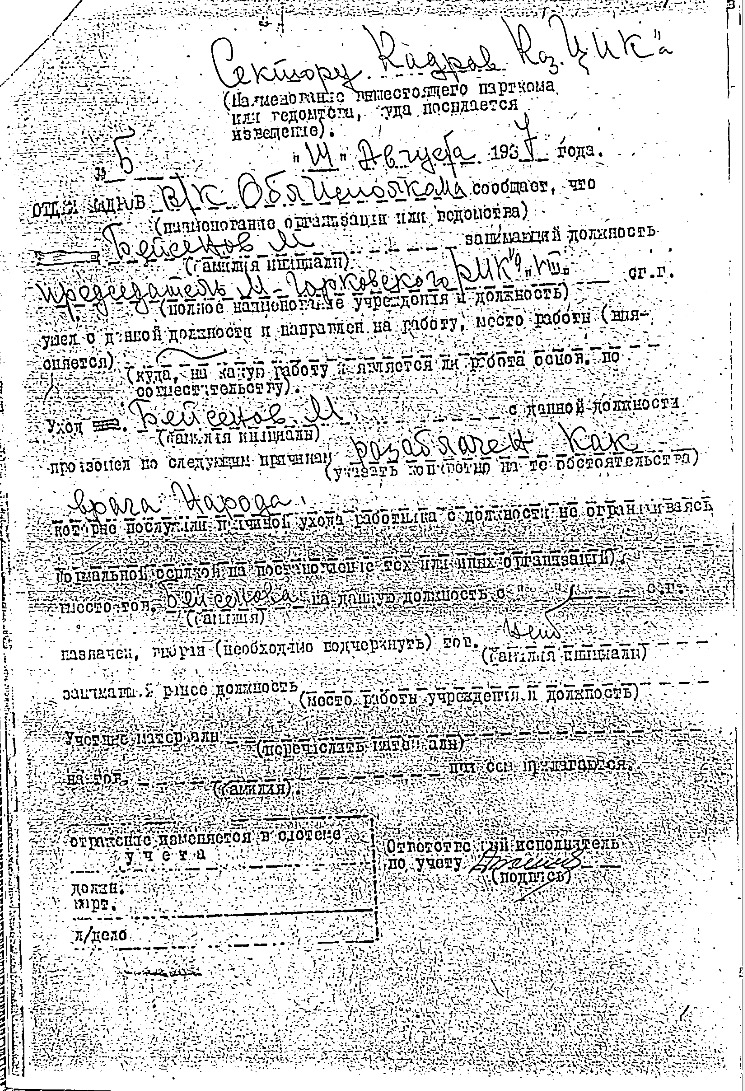 Сектору Кадров Каз.ЦИК"а
(Наименование вышестоящего парткома
или ведомости, куда посылается
извещение).
№ 5 "Ш" Августа 1937 года.
ОТДЕЛ КАДРОВ В/К Облисполкома сообщает, что
(наименование организации или ведомства)
Бейсенов М занимающий должность
(фамилия инициали)
председатель М-Горковского РИК"а с.г.
(полное наименование учреждения и должность)
ушел с данной должности и направлен на работу, место работы (выя-
сняется)
(куда, на какую работу и является ли работа основ. по
совместительству).
Уход Бейсенов М. с данной должности
(фамилия инициали)
произошел по следующим причинам разаблачен как
(указать конкретно на те обстоятельства)
врага Народа.
которые послужили причиной ухода работника с должности не ограничиваясь
формальной ссылкой на постановление тех или иных организаций).
вместо тов. Бейсенова на данную должность с " " с.г.
(фамилия)
назначен, избран (необходимо подчеркнуть) тов. нет
(фамилия инициали)
занимавший ранее должность
(место работы учреждения и должность)
Учетные материали
(перечислить материали)
на тов. при сем прилагаются.
(фамилия).
отражение изменяется в системе
учета
должн.
карт.
л/дело
Ответственный исполнитель
по учету
(подпись)